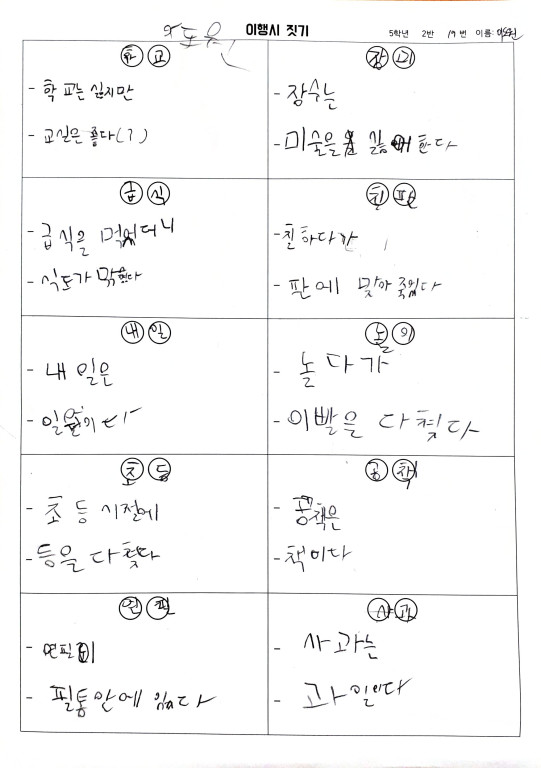 이행시 짓기
5학년 2반 19번 이름:
학교
- 학교는 싫지만
- 교실은 좋다(?)
장미
- 장수는
- 미술을 싫어한다
급식
- 급식을 먹었더니
- 식도가 막혔다
친판
- 친하다가
- 판에 맞아 죽었다
내일
- 내일은
- 일요일이다
놀이
- 놀다가
- 이빨을 다쳤다
초등
- 초등시절에
- 등을 다쳤다
공책
- 공책은
- 책이다
연필
- 연필이
- 필통안에 있다
사과
- 사과는
- 과일이다